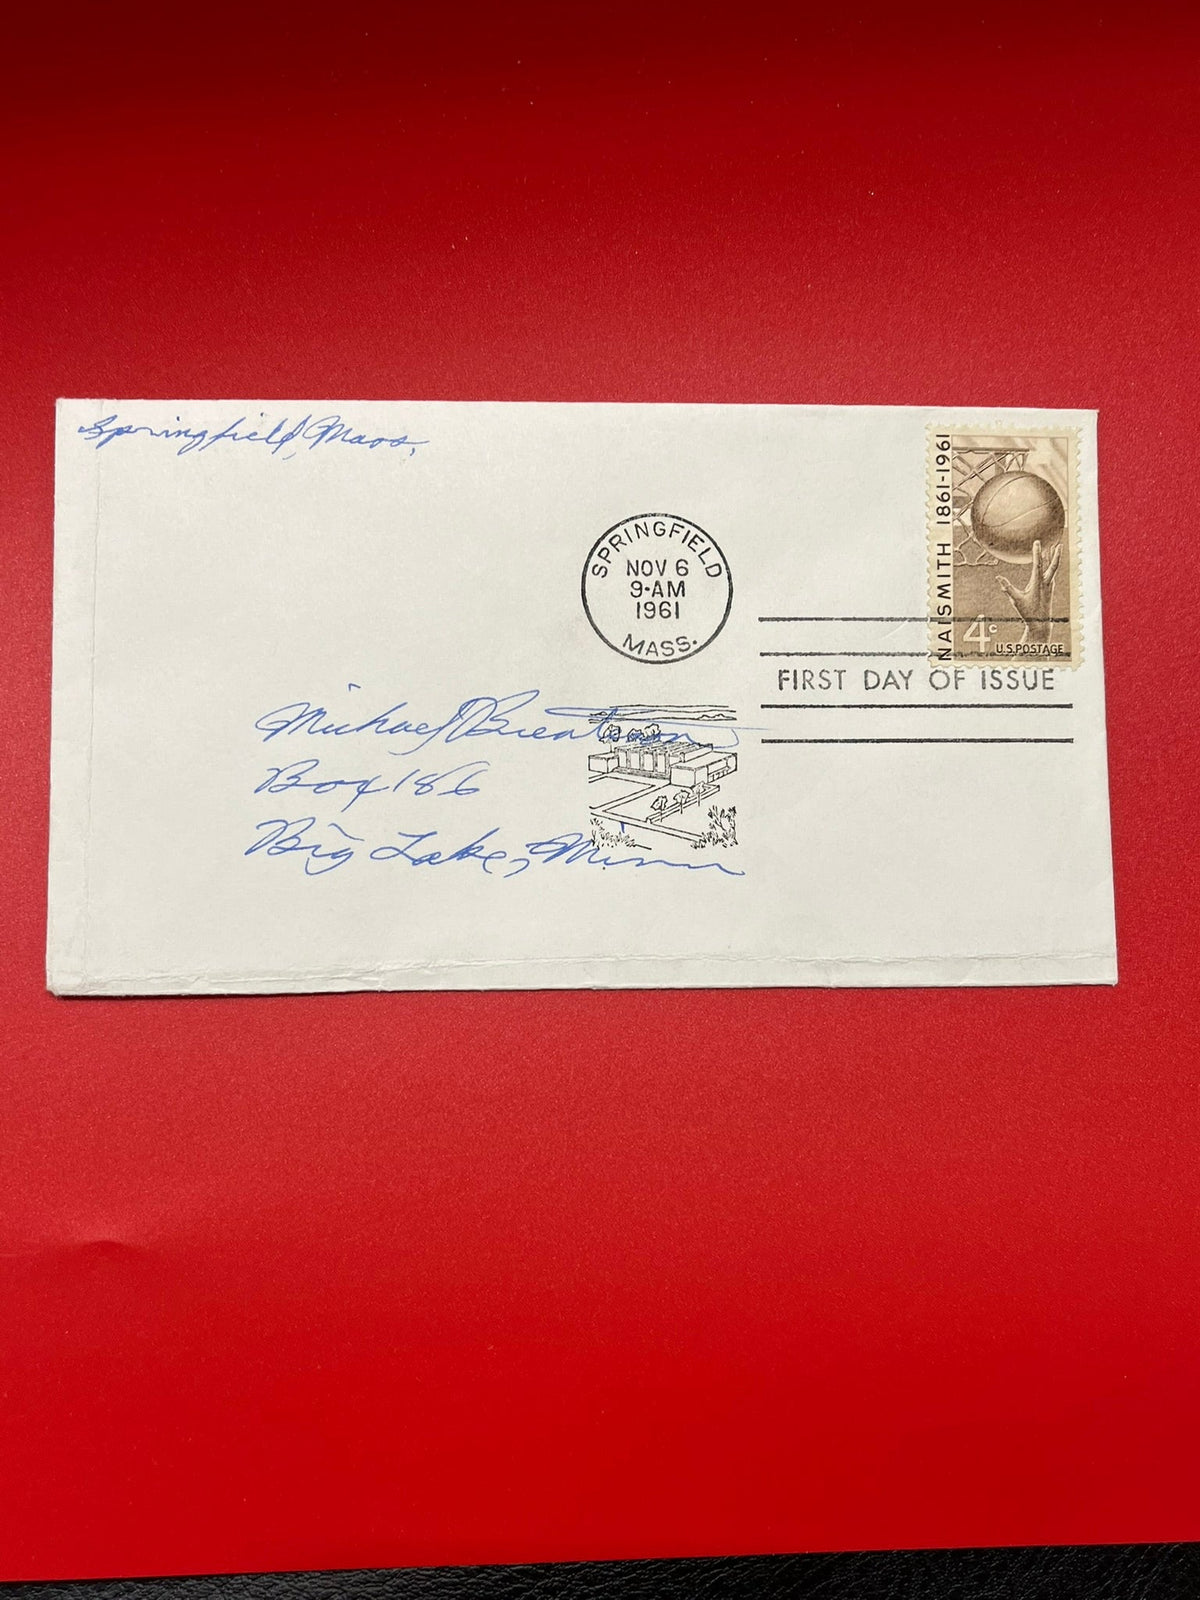 Springfield, Mass.
NAISMITH 1861-1961
4c
U.S. POSTAGE
SPRINGFIELD
NOV 6
9-AM
1961
MASS.
FIRST DAY OF ISSUE
Michael
Box 186
Big Lake, Minn